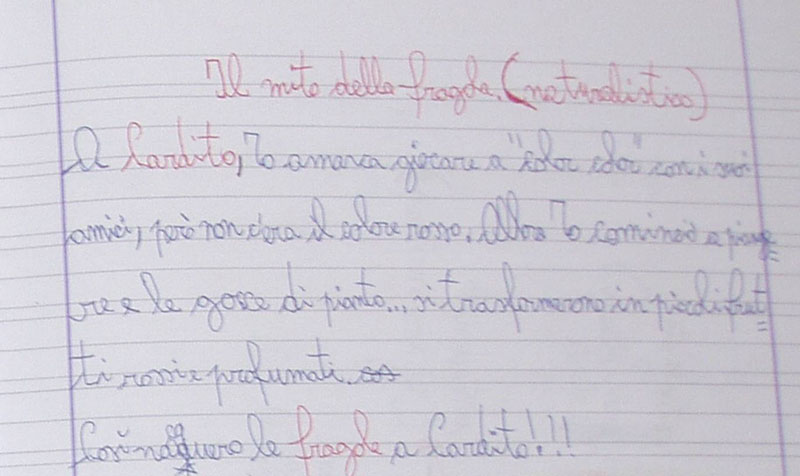 Il mito della fragola. (naturalistico)
A Cardito, Io amava giocare a "color color" con i suoi
amici, però non c'era il colore rosso. Allora Io cominciò a piange
re e le gocce di pianto... si trasformarono in piccoli frut
ti rossi e profumati.
Così nacquero le fragole a Cardito!!!